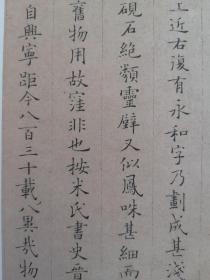 上近右復有永和字乃劃成甚淺
硯石絶類靈璧又似鳳咮甚細而
舊物用故窪非也按米氏書史晉
自興寧距今八百三十載八異哉物